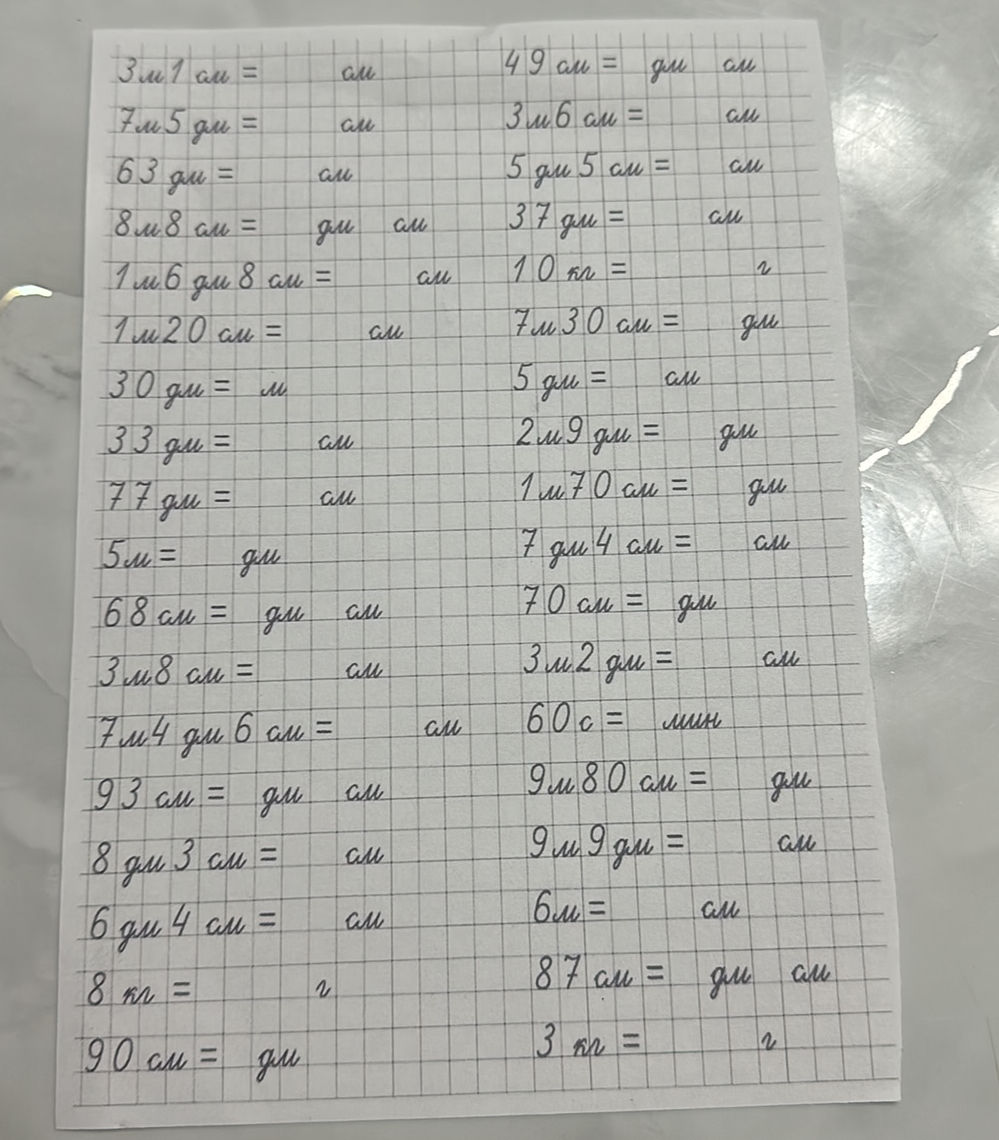 3м1 см = см
7м5 дм = см
63 дм = см
8м8 см = дм см
1м6 дм8 см = см
1м20 см = см
30 дм = м
33 дм = см
77 дм = см
5м = дм
68 см = дм см
3м8 см = см
7м4 дм6 см = см
93 см = дм см
8 дм3 см = см
6 дм4 см = см
8 кг = г
90 см = дм
49 см = дм см
3м6 см = см
5 дм5 см = см
37 дм = см
10 кг = г
7м30 см = дм
5 дм = см
2м9 дм = дм
1м70 см = дм
7 дм4 см = см
70 см = дм
3м2 дм = см
60 с = мин
9м80 см = дм
9м9дм = см
6м = см
87 см = дм см
3 кг = г